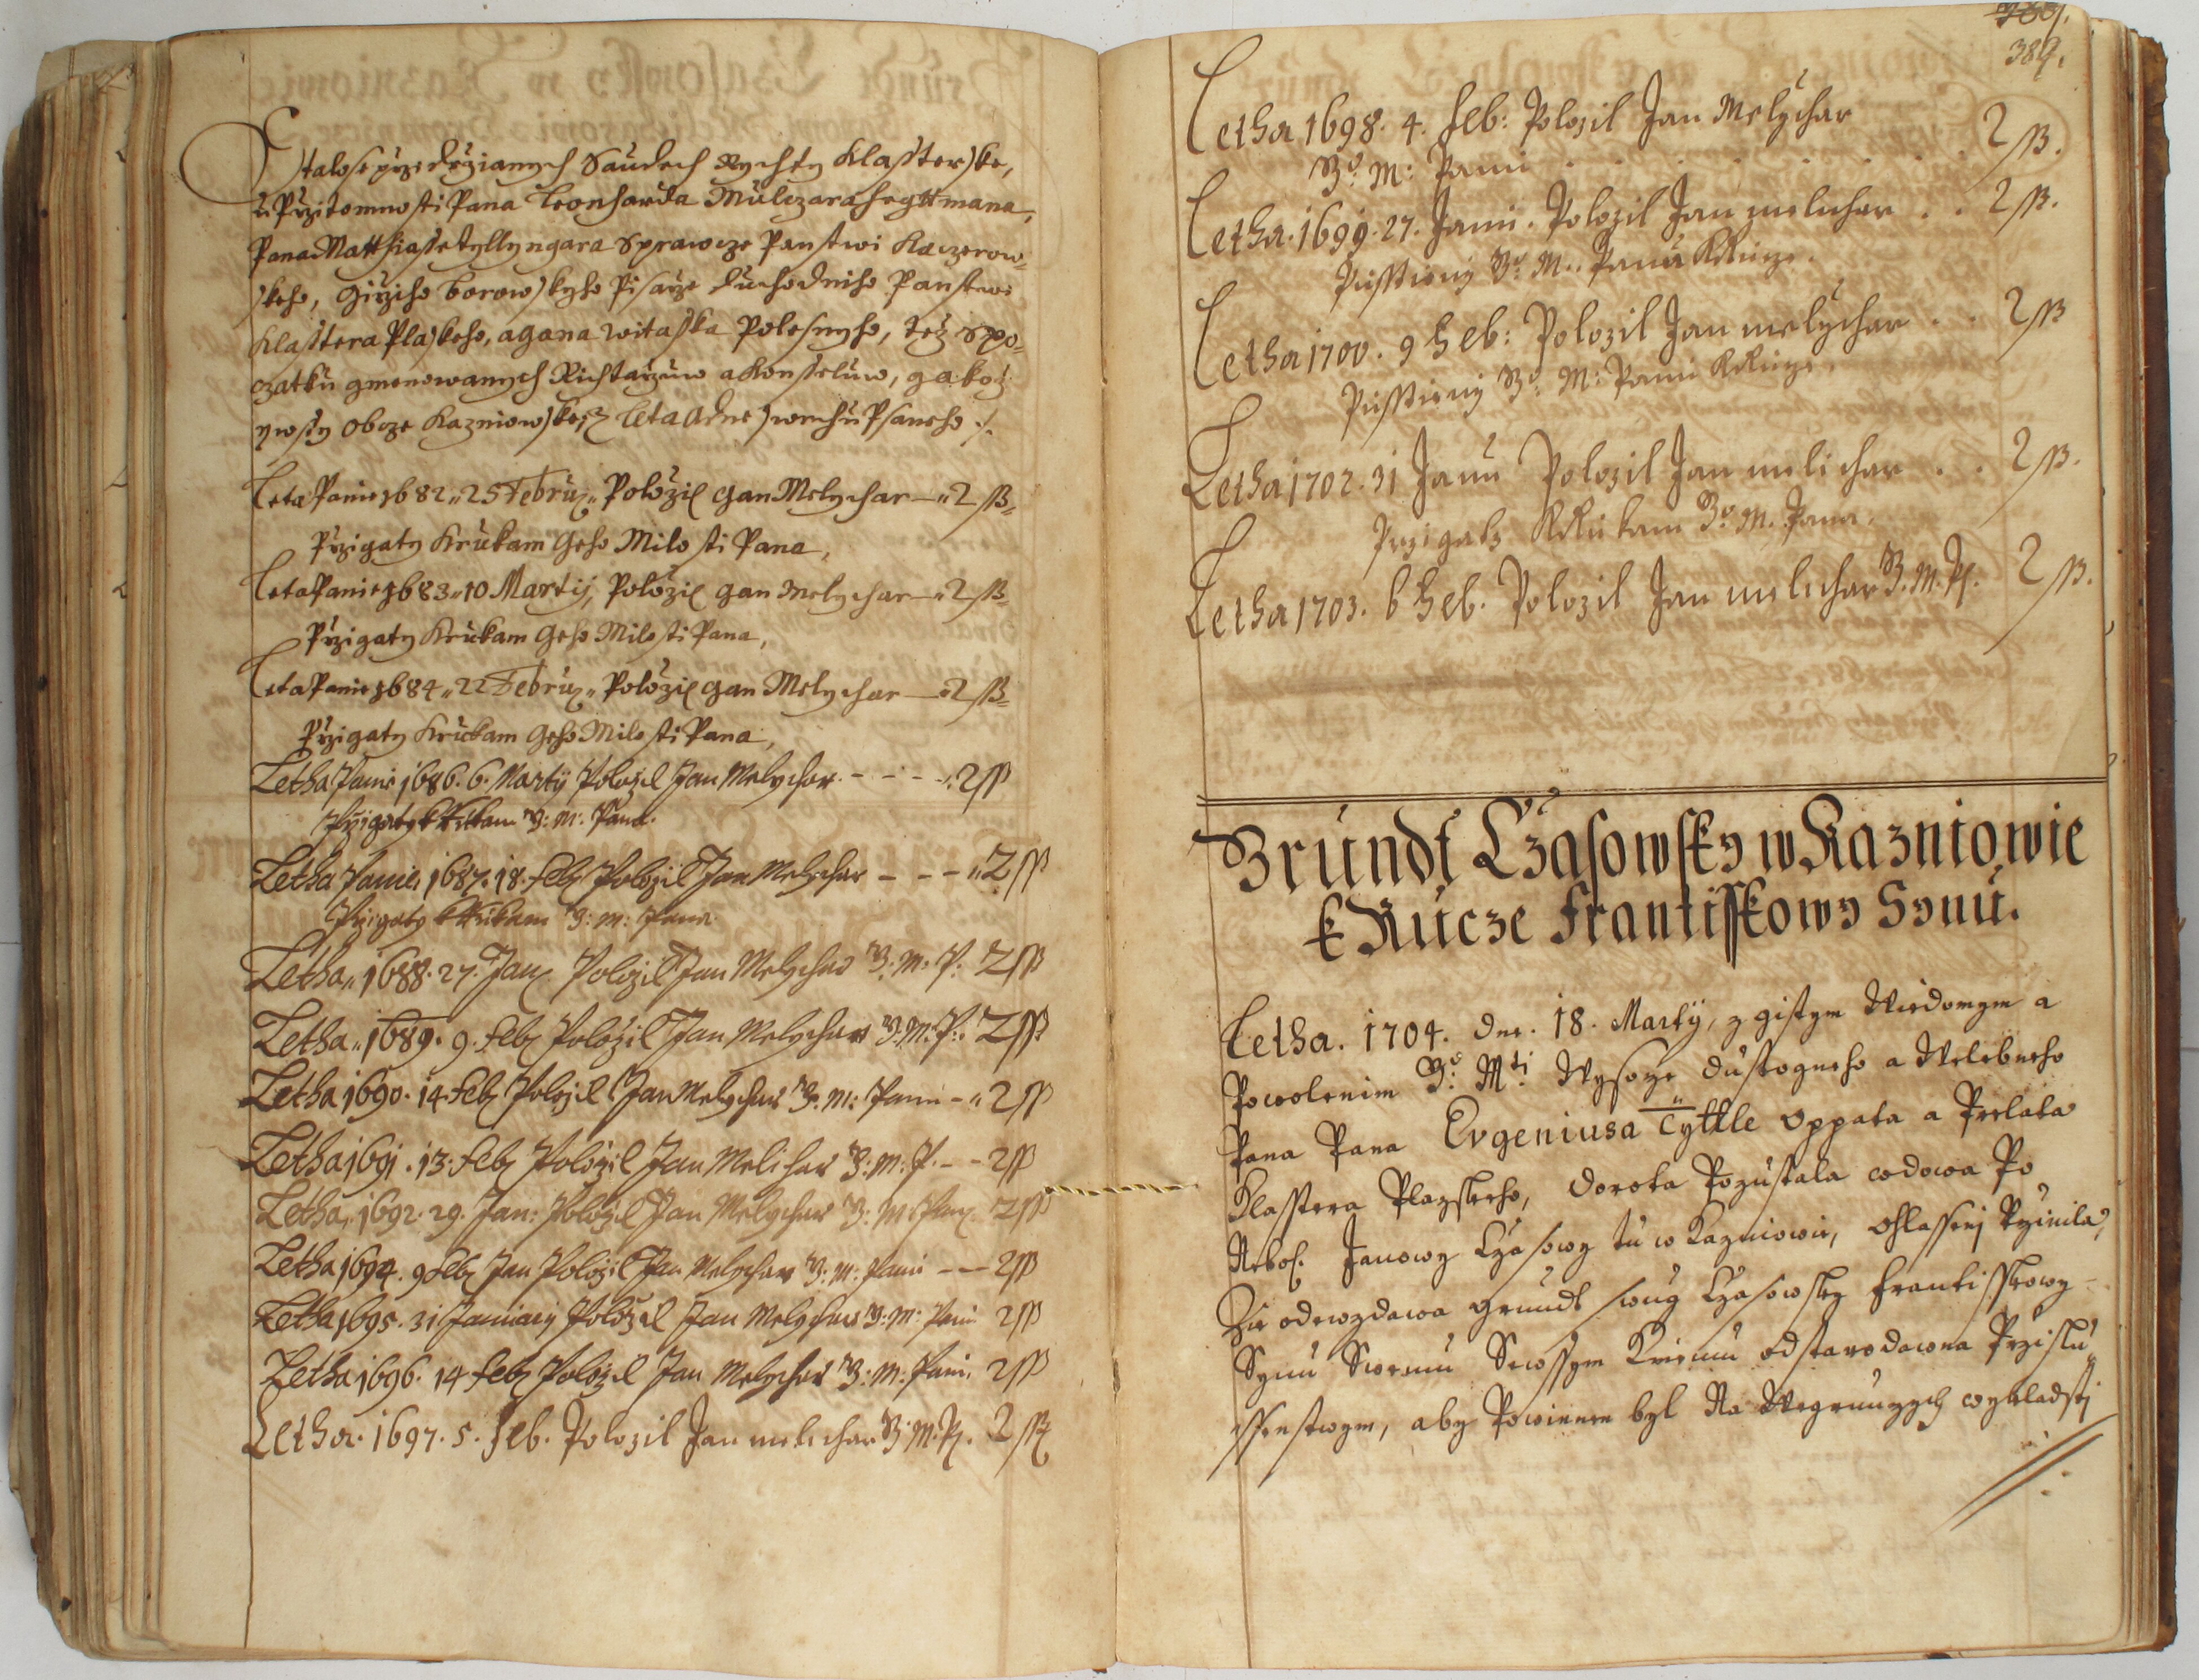 Stalose przi drzianych Saudech Rychty Klasterske,
u Przitomnosti Pana Leonharda Mulczara Hegttmana,
Pana Matthiasse tyllyngara Sprawcze Panstwi Kaczerow-
skeho, Girziho Borowskyho Pisarze duchodniho Panstwi
Klastera Plaskeho, a gana Witaska Polesnyho, tez Spo-
czatku gmenowanych Richtarzuw a Konsseluw, gakoz
y wssy Obcze Kazniowske, Leta a dne swrchu Psaneho
Leta Panie 1682 25 Febru: Polozil gan Melychar 2 ß
Przigaty k rukam Geho Milosti Pana,
Leta Panie 1683 10 Martij, Polozil gan Melychar 2 ß
Przigaty k rukam Geho Milosti Pana,
Leta Panie 1684 22 Febru: Polozil gan Melychar 2 ß
Przigaty k rukam Geho Milosti Pana,
Letha Panie 1686. 6. Martij Polozil Jan Melychar - - - - 2 ß
Przigaty k Rukam J: M: Pana.
Letha Panie 1687. 18. Feb: Polozil Jan Melychar - - - 2 ß
Przigaty k Rukam J: M: Pana
Letha 1688. 27. Jan: Polozil Jan Melychar J: M: P: 2 ß
Letha 1689. 9. Feb: Polozil Jan Melychar J: M: P: 2 ß
Letha 1690. 14. Feb: Polozil Jan Melychar J: M: Panu - 2 ß
Letha 1691. 13. Feb: Polozil Jan Melichar J: M: P. - - 2 ß
Letha 1692. 29. Jan: Polozil Jan Melychar J: M: 2 ß
Letha 1694. 9 Feb: Jan Polozil Jan Melychar J: M: Panu - - 2 ß
Letha 1695. 31 Januarij Polozil Jan Melychar J: M: Panu 2 ß
Letha 1696. 14 Feb: Polozil Jan Melychar J: M: Panu 2 ß
Letha. 1697. 5. Feb. Polozil Jan melichar J: M: P. 2 ß
389.
Letha 1698. 4. Feb: Polozil Jan Melychar
Jo M: Panu 2 ß.
Letha. 1699. 27. Janu. Polozil Jan melichar . . 2 ß.
Jo M. Pana
Letha 1700. 9 Feb: Polozil Jan melychar . . 2 ß
Jo M: Panu
Letha 1702. 31 Janu Polozil Jan melichar . . 2 ß.
Przigate k Rukam Jo M. Pana.
Letha 1703. 6 Feb. Polozil Jan melichar J. M. P. 2 ß.
Grundt Czasowsky w Kazniowie
k Rucze Frantisskowy Synu.
Letha. 1704. dne. 18. Martij, z gistym Wiedomym a
Powolenim Jo Mti Wysocze Dustogneho a Welebneho
Pana Pana Evgeniusa Tyttle Oppata a Prelata
Klasstera Plazskeho, Dorota Pozustala wdowa Po
Nebos. Janowy Czasowy tu w Kazniowie, Ohlasseni Vczinila,
Ze odewzdawa grundt swug Czasowsky Frantisskowy
Synu Swemu Sewssym k niemu odstarodawna Przislu-
ssenstwym, aby Powinnen byl Na Wegrunczych wykladsti